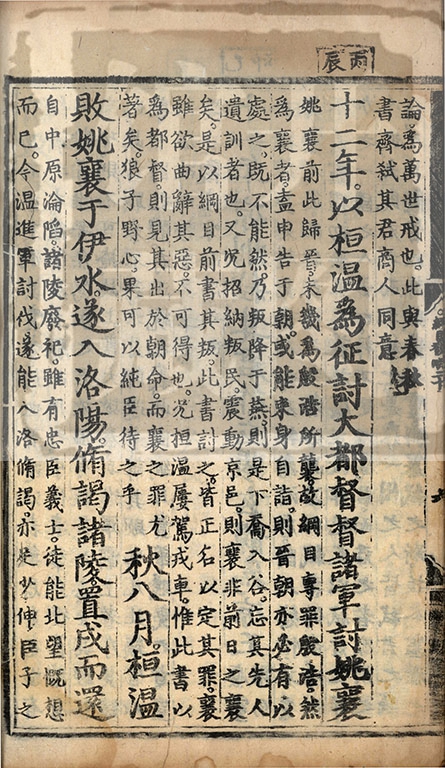 丙辰
論為萬世戒也。此與春秋
書齊弑其君商人同意
十二年。以桓温為征討大都督督諸軍討姚襄
姚襄前此歸晉。未幾為殷浩所襲。故綱目專罪殷浩。然
為襄者。盍申告于朝。或能束身自詣。則晉朝亦必有以
處之。既不能然。乃叛降于燕。則是下喬入谷。忘其先人
遺訓者也。又况招納叛民。震動京邑。則襄非前日之襄
矣。是以綱目前書其叛。此書討之。皆正名以定其罪。襄
雖欲曲辭其惡。不可得也。况桓温屢駕戎車。惟此書以
為都督。則見其出於朝命。而襄之罪尤
著矣。狼子野心。果可以純臣待之乎
秋八月。桓温
敗姚襄于伊水。遂入洛陽。脩謁諸陵置戍而還
自中原淪陷。諸陵廢祀雖有忠臣義士。徒能北望慨想
而已。今温進軍討伐遂能入洛脩謁。亦足少伸臣子之